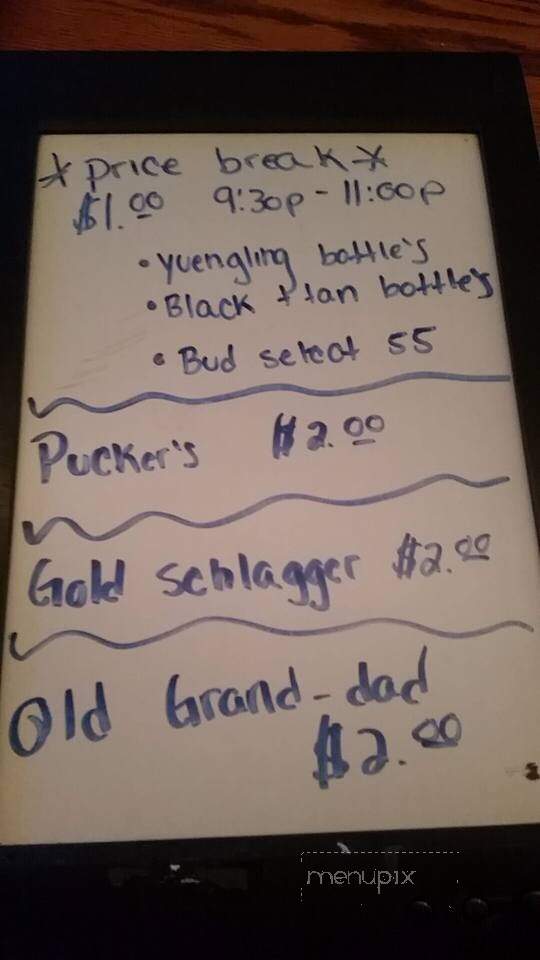 * price break *
$1.00 9:30p - 11:00p
• Yuengling bottle's
• Black + tan bottle's
• Bud select 55
Pucker's $2.00
Gold schlagger $2.00
Old Grand-dad
$2.00
menupix